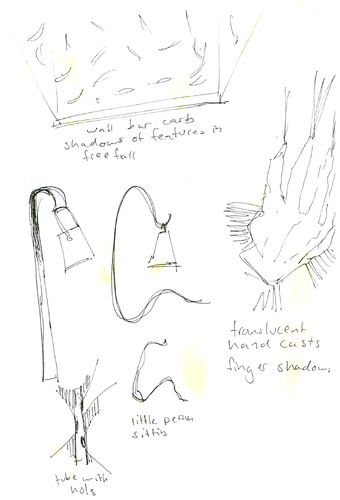 wall bar casts
shadows of features in
freefall
translucent
hand casts
finger shadows
little person
sitting
tube with
hols